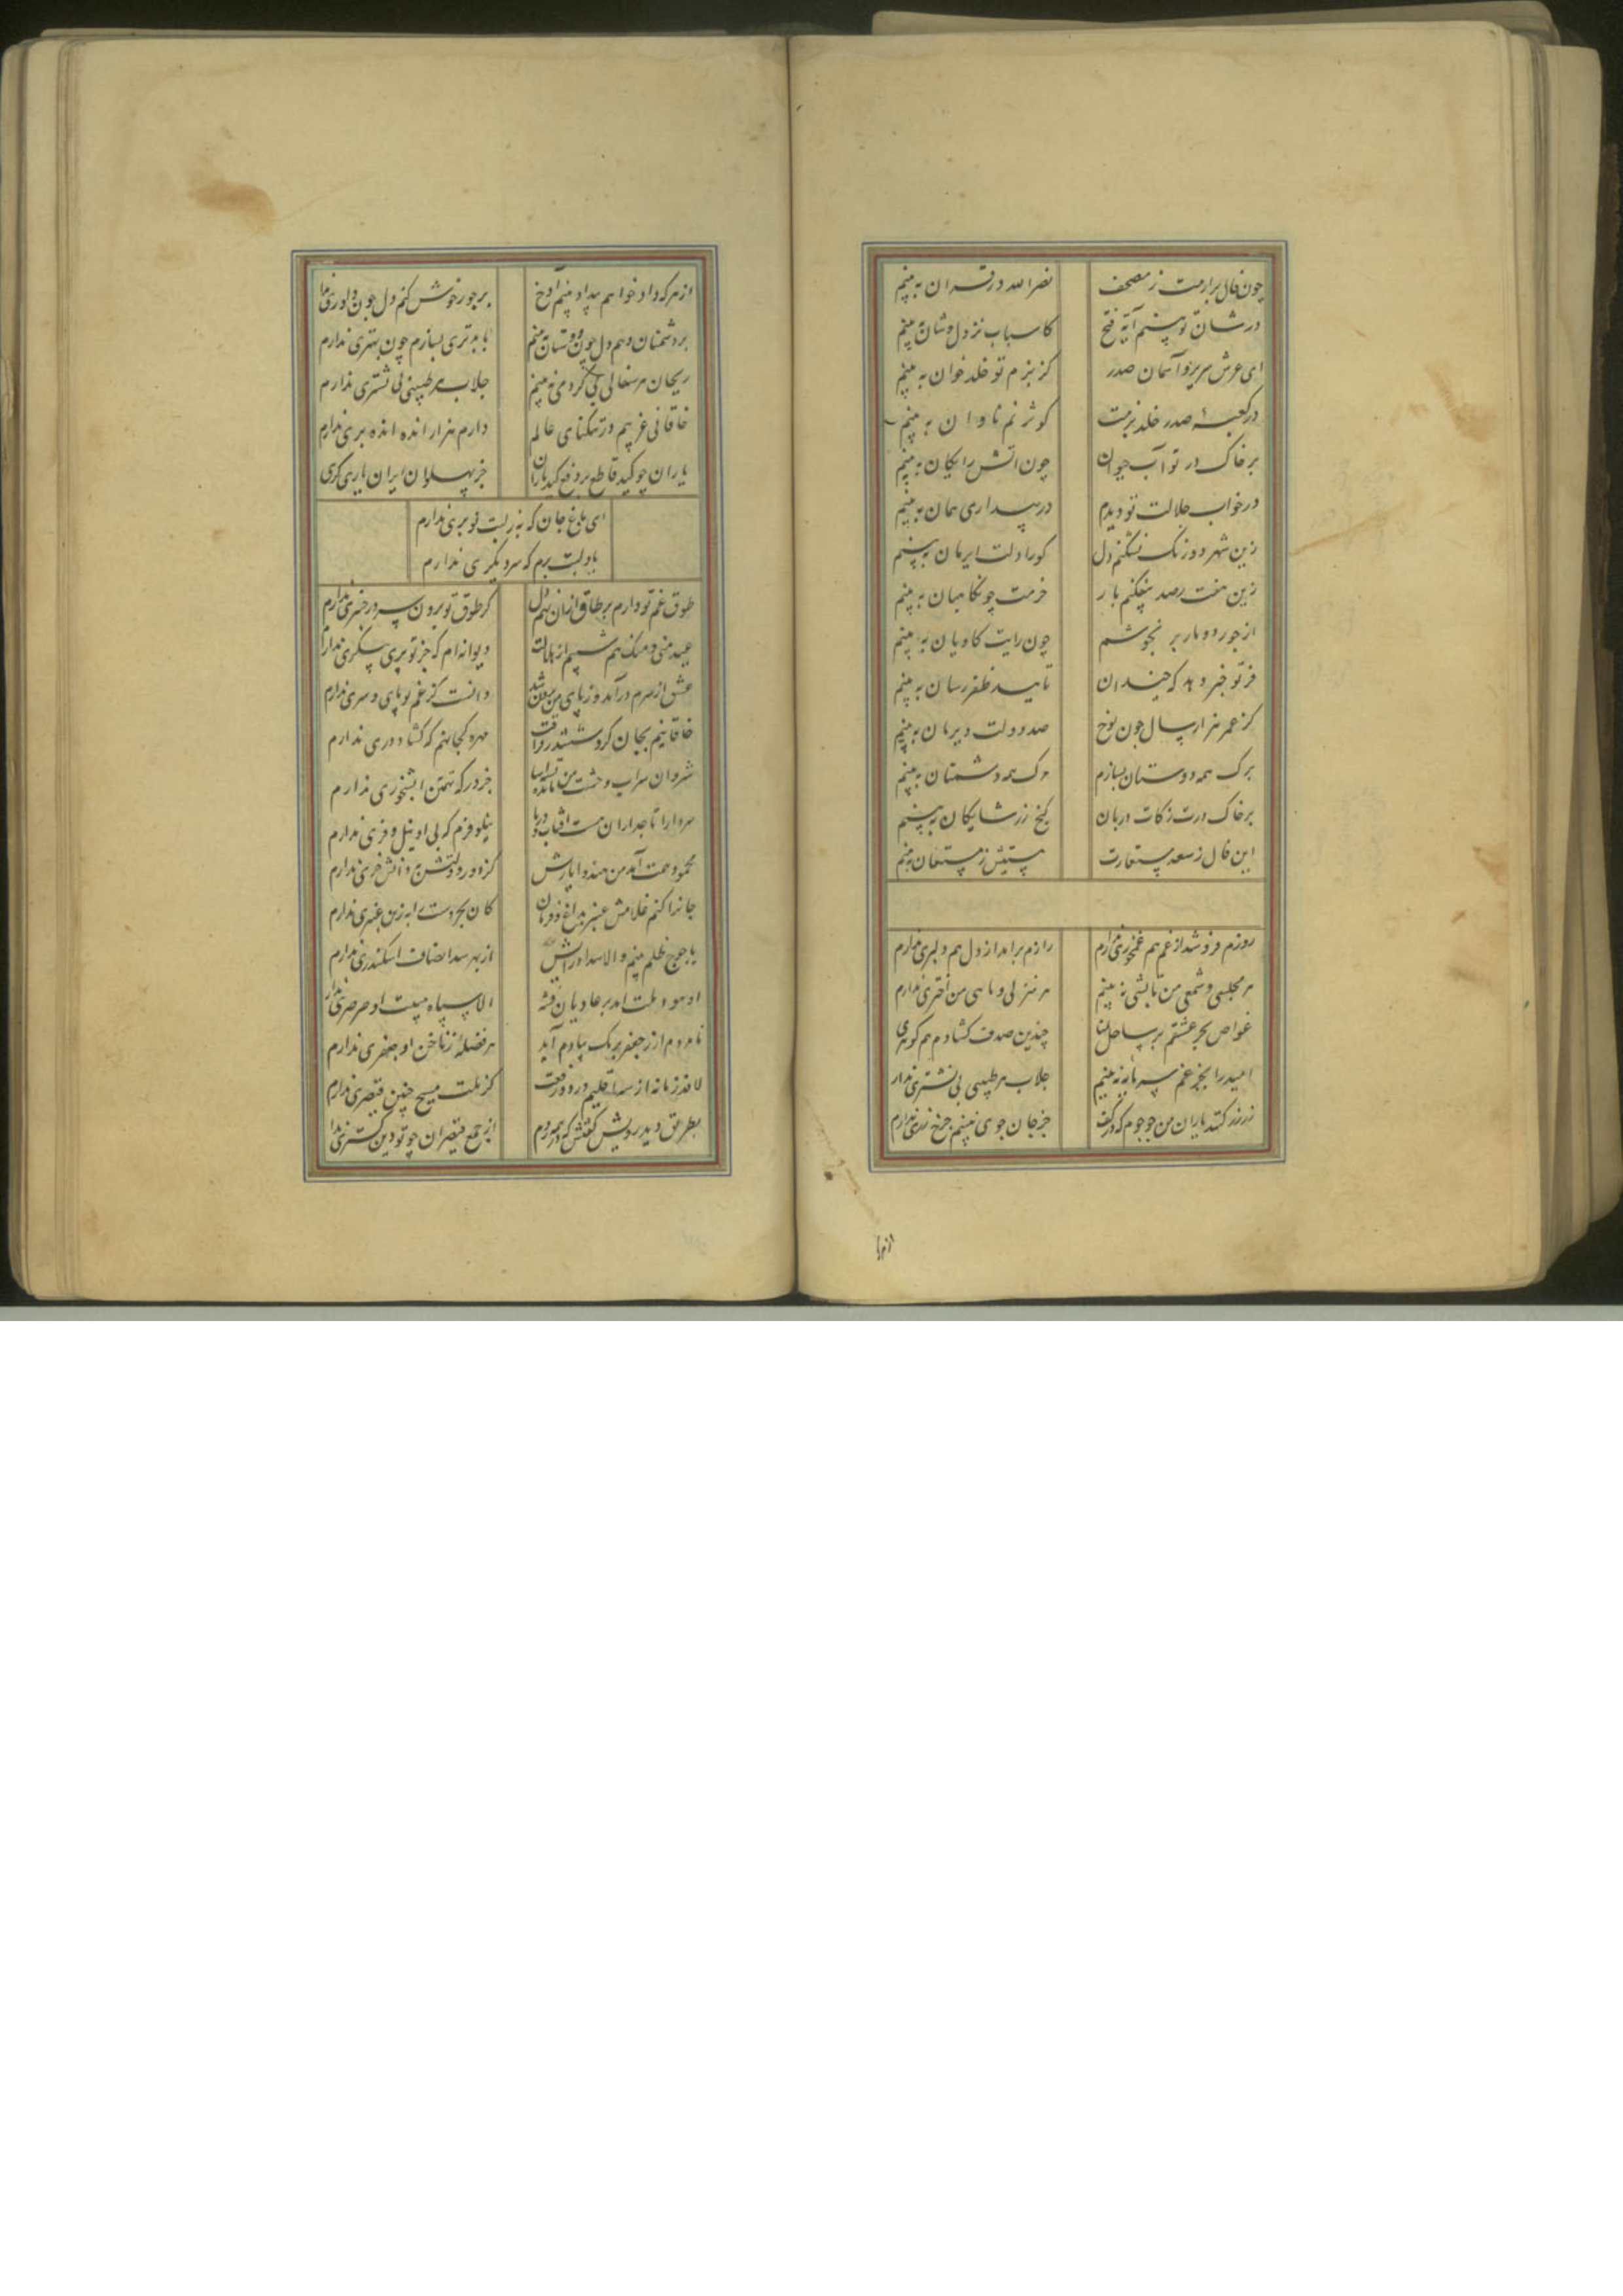 چون فال برآرمت ز مصحف
نصر الله در قران به بینم
در شان تو بینم آیة فتح
کاسباب نزدل و شان به بینم
ای عرش سریر و آسمان صدر
کز بزم تو خلد خوان به بینم
در کعبهٔ صدر خلد بزمت
کوثر نم ناودان به بینم
بر خاک در تو آب حیوان
چون اتش رایکان به بینم
در خواب جلالت تو دیدم
در بیداری همان به بینم
زین شهر دو رنک نشکنم دل
کورا دلت ایرمان به بینم
زین هفت رصد نیفکنم بار
از جور دو مار بر نجوشم
چون رایت کاویان به بینم
فر تو خبر دهد که چندان
تایید ظفر رسان به بینم
کز عمر هزار سال چون نوح
صد دولت دیرمان به بینم
برک همه دوستان بسازم
مرک همه دشمنان به بینم
بر خاک درت زکات دربان
کنج زر شایکان به بینم
این فال ز سعد مستعارت
روزم فرو شد از غم هم غمخوری ندارم
رازم برامد از دل هم دلبری ندارم
هر مجلسی و شمعی من تابشی نه بینم
هر منزلی و ماهی من اختری ندارم
غواص بحر عشقم بر ساحل
چندین صدف کشادم هم کوهری
امید را بجز غم سرمایه نه بینم
جلاب هر طبیبی بی نشتری ندارم
زر زر کنند یاران من جو جوم که در کف
جز جان جوی نه بینم جز رخ زری ندارم
از هر که داد خواهم بیداد بینم آوخ
بر جور خوش کنم دل چون داوری
بر دشمنان دهم دل چون دوستان نه بینم
با بدتری بسازم چون بهتری ندارم
ریحان هر سفالی بی کژدمی نه بینم
جلاب هر طبیبی بی نشتری ندارم
خاقانی غریبم در تنکنای عالم
دارم هزار انده انده بری ندارم
جز پهلوان ایران یاری کری
ای باغ جان که به ز لبت نوبری ندارم
یاد لبت برم که سر دیکری ندارم
طوق غم تو دارم بر طاق ازان نهم دل
کز طوق تو برون سر در چنبری ندارم
عید منی و من
دیوانه ام که جز تو پری پیکری ندارم
عشق از سرم درآمد وز پای من برون شد
دانست کز غم تو پای و سری ندارم
خاقانیم بجان کرو ششدر فراقت
مهره کجا نهم که کشاد دری ندارم
شروان سراب وحشت من تشنه
جز درکه تهمتن ابشخوری ندارم
سردار تاجداران هست افتاب و دریا
نیلوفرم که بی او نیل و فری ندارم
محمود همت آمد من هندو ایازش
کز دور دولتش به دانش خری ندارم
جانرا کنم غلامش عنبر بداغ فرمان
کان بحر دست را به زین عنبری ندارم
یاجوج ظلم بینم والا سداد رایش
از بهر سد انصاف اسکندری ندارم
او هود ملت امد بر عادیان فتنه
الا سپاه هیبت او صرصری ندارم
نامردم ار ز جعفر برمک بیادم آید
هر فضلهٔ ز ناخن او جعفری ندارم
لافد زمانه از سر اقلیم
کز ملت مسیح چنین قیصری ندارم
بطریق دید رویش کفتش که در همه روم
از جمع قیصران چو تو دین کستری ندارم
از هر